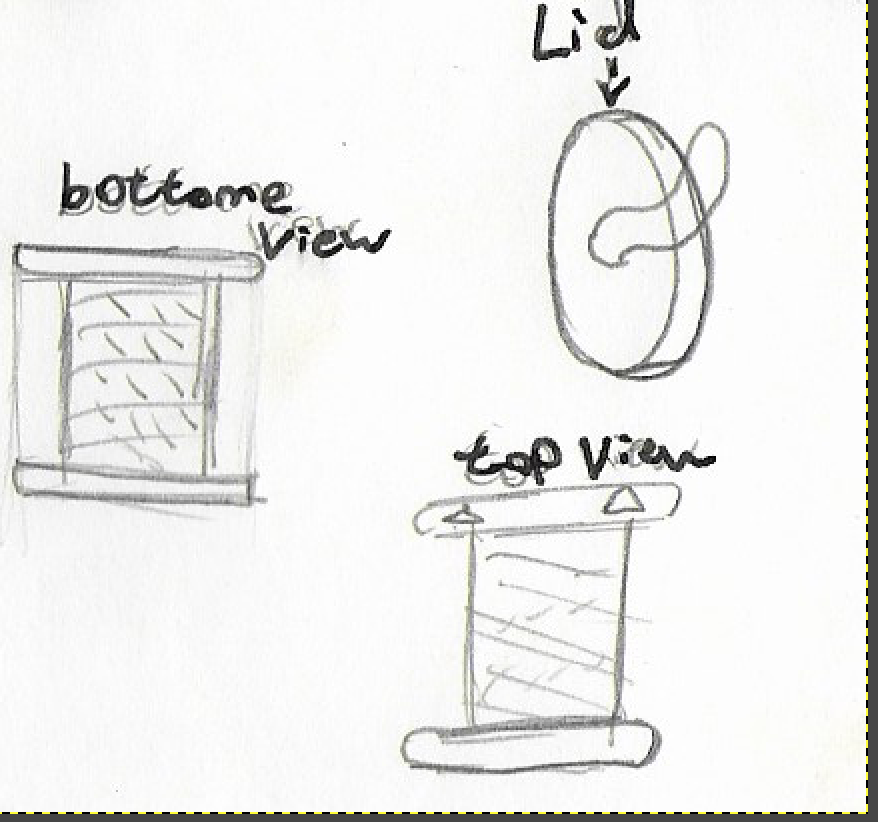 Lid
bottome
View
top View